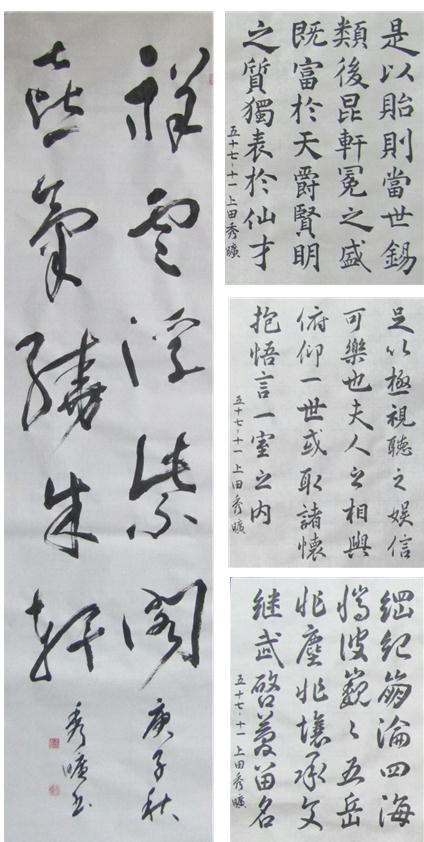 祥雲浮紫閣
喜氣繞朱軒
庚子秋
秀曠書
是以貽則當世錫
類後昆軒冕之盛
既富於天爵賢明
之質獨表於仙才
五十七-十一 上田秀曠
足以極視聽之娛信
可樂也夫人之相與
俯仰一世或取諸懷
抱悟言一室之内
五十七-十一 上田秀曠
綱紀淪四海
彼巍〻五岳
非塵非壤承文
継武啓名
五十七-十一 上田秀曠